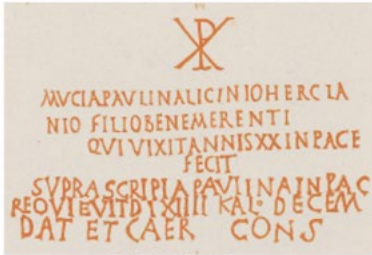 MVCIAPAVLINALICINIOHERCLA
NIO FILIOBENEMERENTI
QVI VIXITANNISXXINPACE
FECIT
SVPRASCRIPIAPAVIINAINPAC
REQVIEVITDIXIIII KAL° DECEM
DAT ET CAER CONS